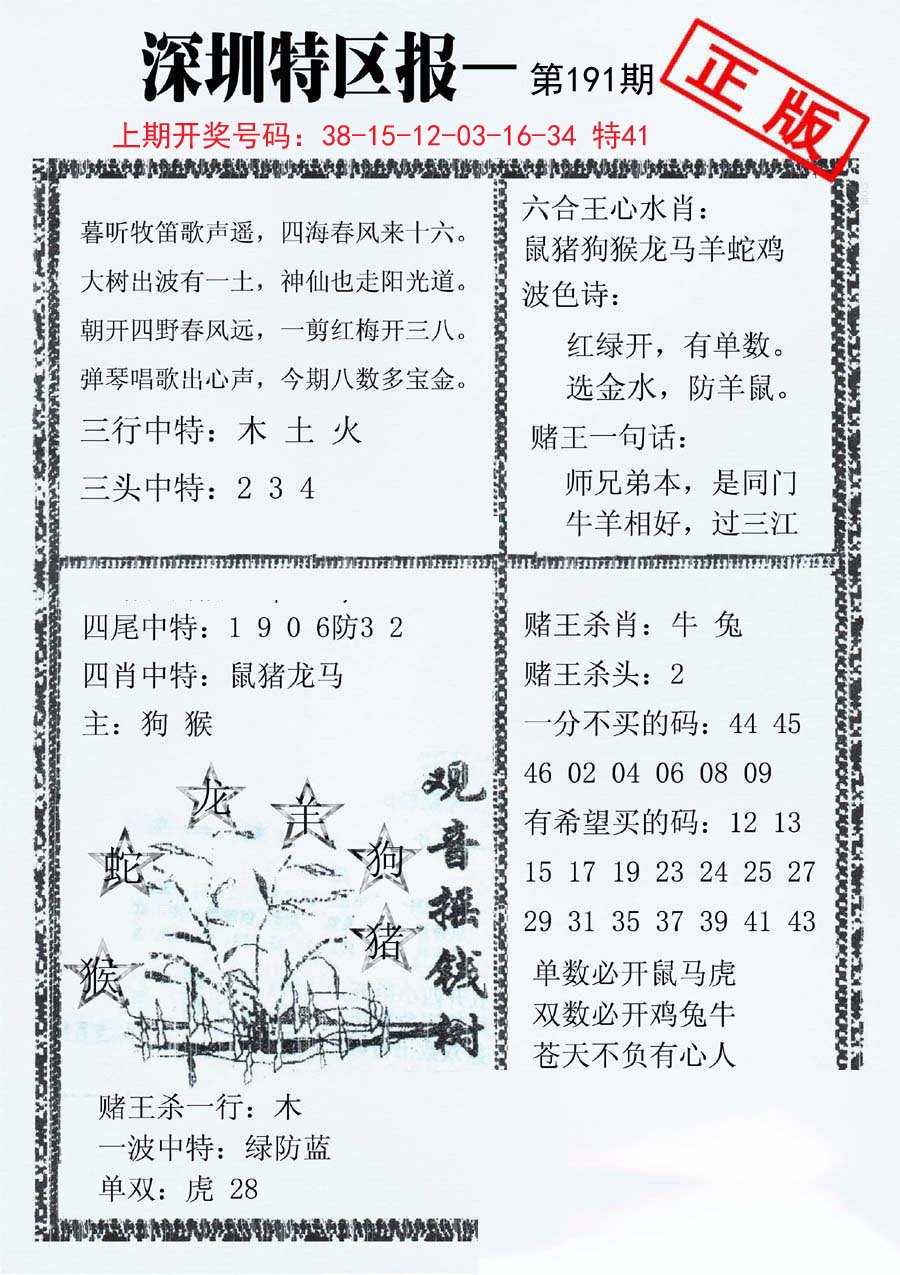 深圳特区报一 第191期
正版
上期开奖号码：38-15-12-03-16-34 特41
暮听牧笛歌声遥，四海春风来十六。
大树出波有一土，神仙也走阳光道。
朝开四野春风远，一剪红梅开三八。
弹琴唱歌出心声，今期八数多宝金。
三行中特：木 土 火
三头中特：2 3 4
六合王心水肖：
鼠猪狗猴龙马羊蛇鸡
波色诗：
红绿开，有单数。
选金水，防羊鼠。
赌王一句话：
师兄弟本，是同门
牛羊相好，过三江
四尾中特：1 9 0 6防3 2
四肖中特：鼠猪龙马
主：狗 猴
龙
羊
蛇
狗
猪
猴
观音摇钱树
赌王杀一行：木
一波中特：绿防蓝
单双：虎 28
赌王杀肖：牛 兔
赌王杀头：2
一分不买的码：44 45
46 02 04 06 08 09
有希望买的码：12 13
15 17 19 23 24 25 27
29 31 35 37 39 41 43
单数必开鼠马虎
双数必开鸡兔牛
苍天不负有心人